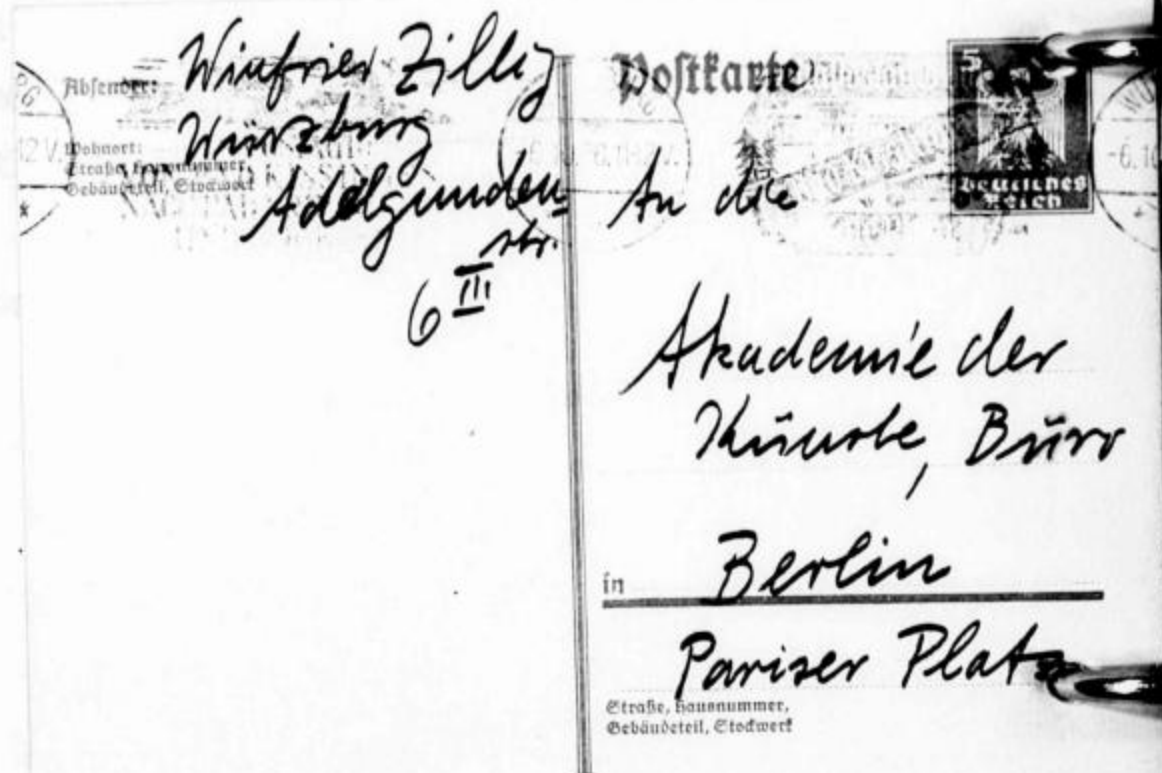 Absender: Winfried Zillig
Würzburg
Wohnort:
Straße, Hausnummer,
Gebäudeteil, Stockwerk
Adelgunden-
str.
6 III
Postkarte
5
Deutsches
Reich
An die
Akademie der
Künste, Büro
in Berlin
Pariser Platz
Straße, Hausnummer,
Gebäudeteil, Stockwerk